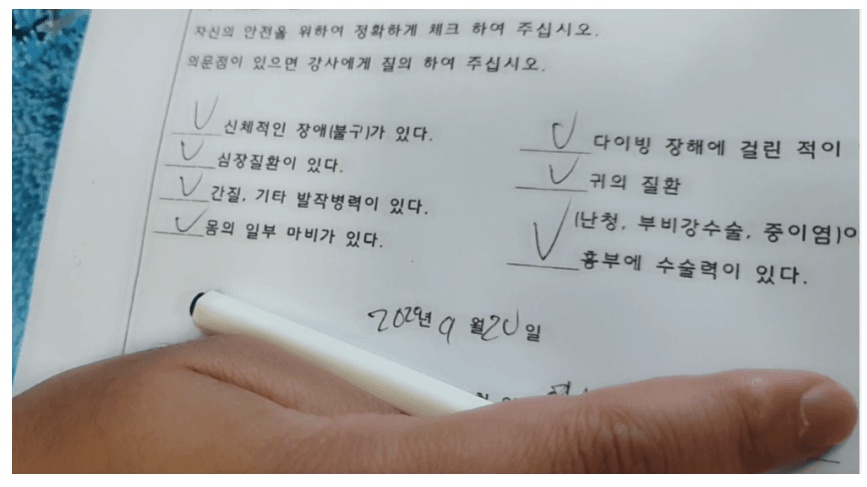 자신의 안전을 위하여 정확하게 체크 하여 주십시오.
의문점이 있으면 강사에게 질의 하여 주십시오.
✓ 신체적인 장애(불구)가 있다.
✓ 심장질환이 있다.
✓ 간질, 기타 발작병력이 있다.
✓ 몸의 일부 마비가 있다.
✓ 다이빙 장해에 걸린 적이
✓ 귀의 질환
(난청, 부비강수술, 중이염)이
✓ 흉부에 수술력이 있다.
년 9 월 20 일